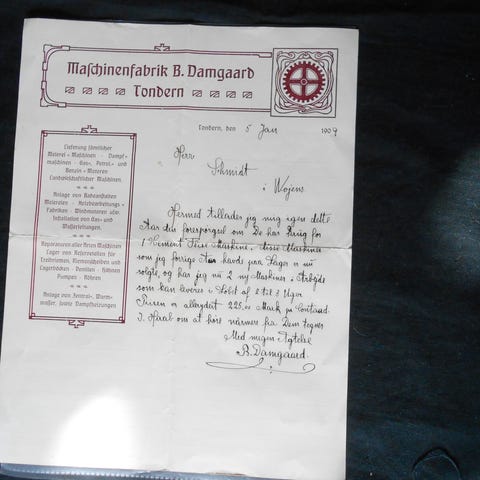 Maschinenfabrik B. Damgaard
Tondern
Tondern, den 5 Jan 1909
Herr
Schmidt
i Wojens
Lieferung sämtlicher
Molerei-Maschinen - Dampf-
maschinen - Gas-, Petrol.- und
Benzin-Motoren
Landwirtschaftlicher Maschinen.
Anlage von Badeanstalten
Molereien - Holzbearbeitungs-
Fabriken - Windmotoren usw.
Installation von Gas- und
Wasserleitungen.
Reparaturen aller Arten Maschinen
Lager von Reserveteilen für
Treibriemen, Riemenscheiben und
Lagerböcken - Ventilen - Hähnen
Pumpen - Röhren
Anlage von Zentral-, Warm-
wasser, sowie Dampfheizungen
Hermed tillades jeg mig igen dette
Aar den forespørgsel om De har Brug for
1 Cement Maskine, disse Maskiner
som jeg forrige Aar havde paa Lager er nu
solgte, og har jeg nu 2 ny Maskiner i Arbejde
som kan leveres i Løbet af 2 til 3 Uger
Prisen er allerydert 225.00 Mark pr Contand.
I Haab om at høre nærmere fra Dem tegner
Med megen Agtelse
B. Damgaard.